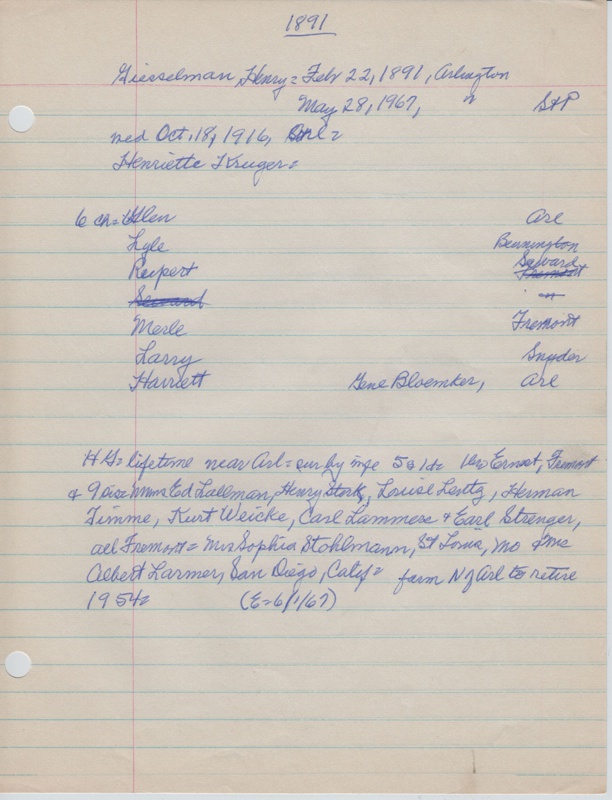 1891
Giesselman, Henry = Febr 22, 1891, Arlington
May 28, 1967, " St P
med Oct. 18, 1916, Arl =
Henriette Kruger =
6 ch = Glen Arl
Lyle Bennington
Reipert Seward
Fremont
Seward "
Merle Fremont
Larry Snyder
Harriett Gene Bloemker, Arl
H G = lifetime near Arl = sur by wife 5 s 1 d = 1 bro Ernest, Fremont
& 9 sis = Mmes Ed Lallman, Henry Stork, Louise Lentz, Herman
Timme, Kurt Weicke, Carl Lammers & Earl Strenger,
all Fremont = Mrs Sophia Stohlmann, St Louis, Mo & Mrs
Albert Larmer, San Diego, Calif = farm N of Arl to retire
1954 = (E = 6/1/67)